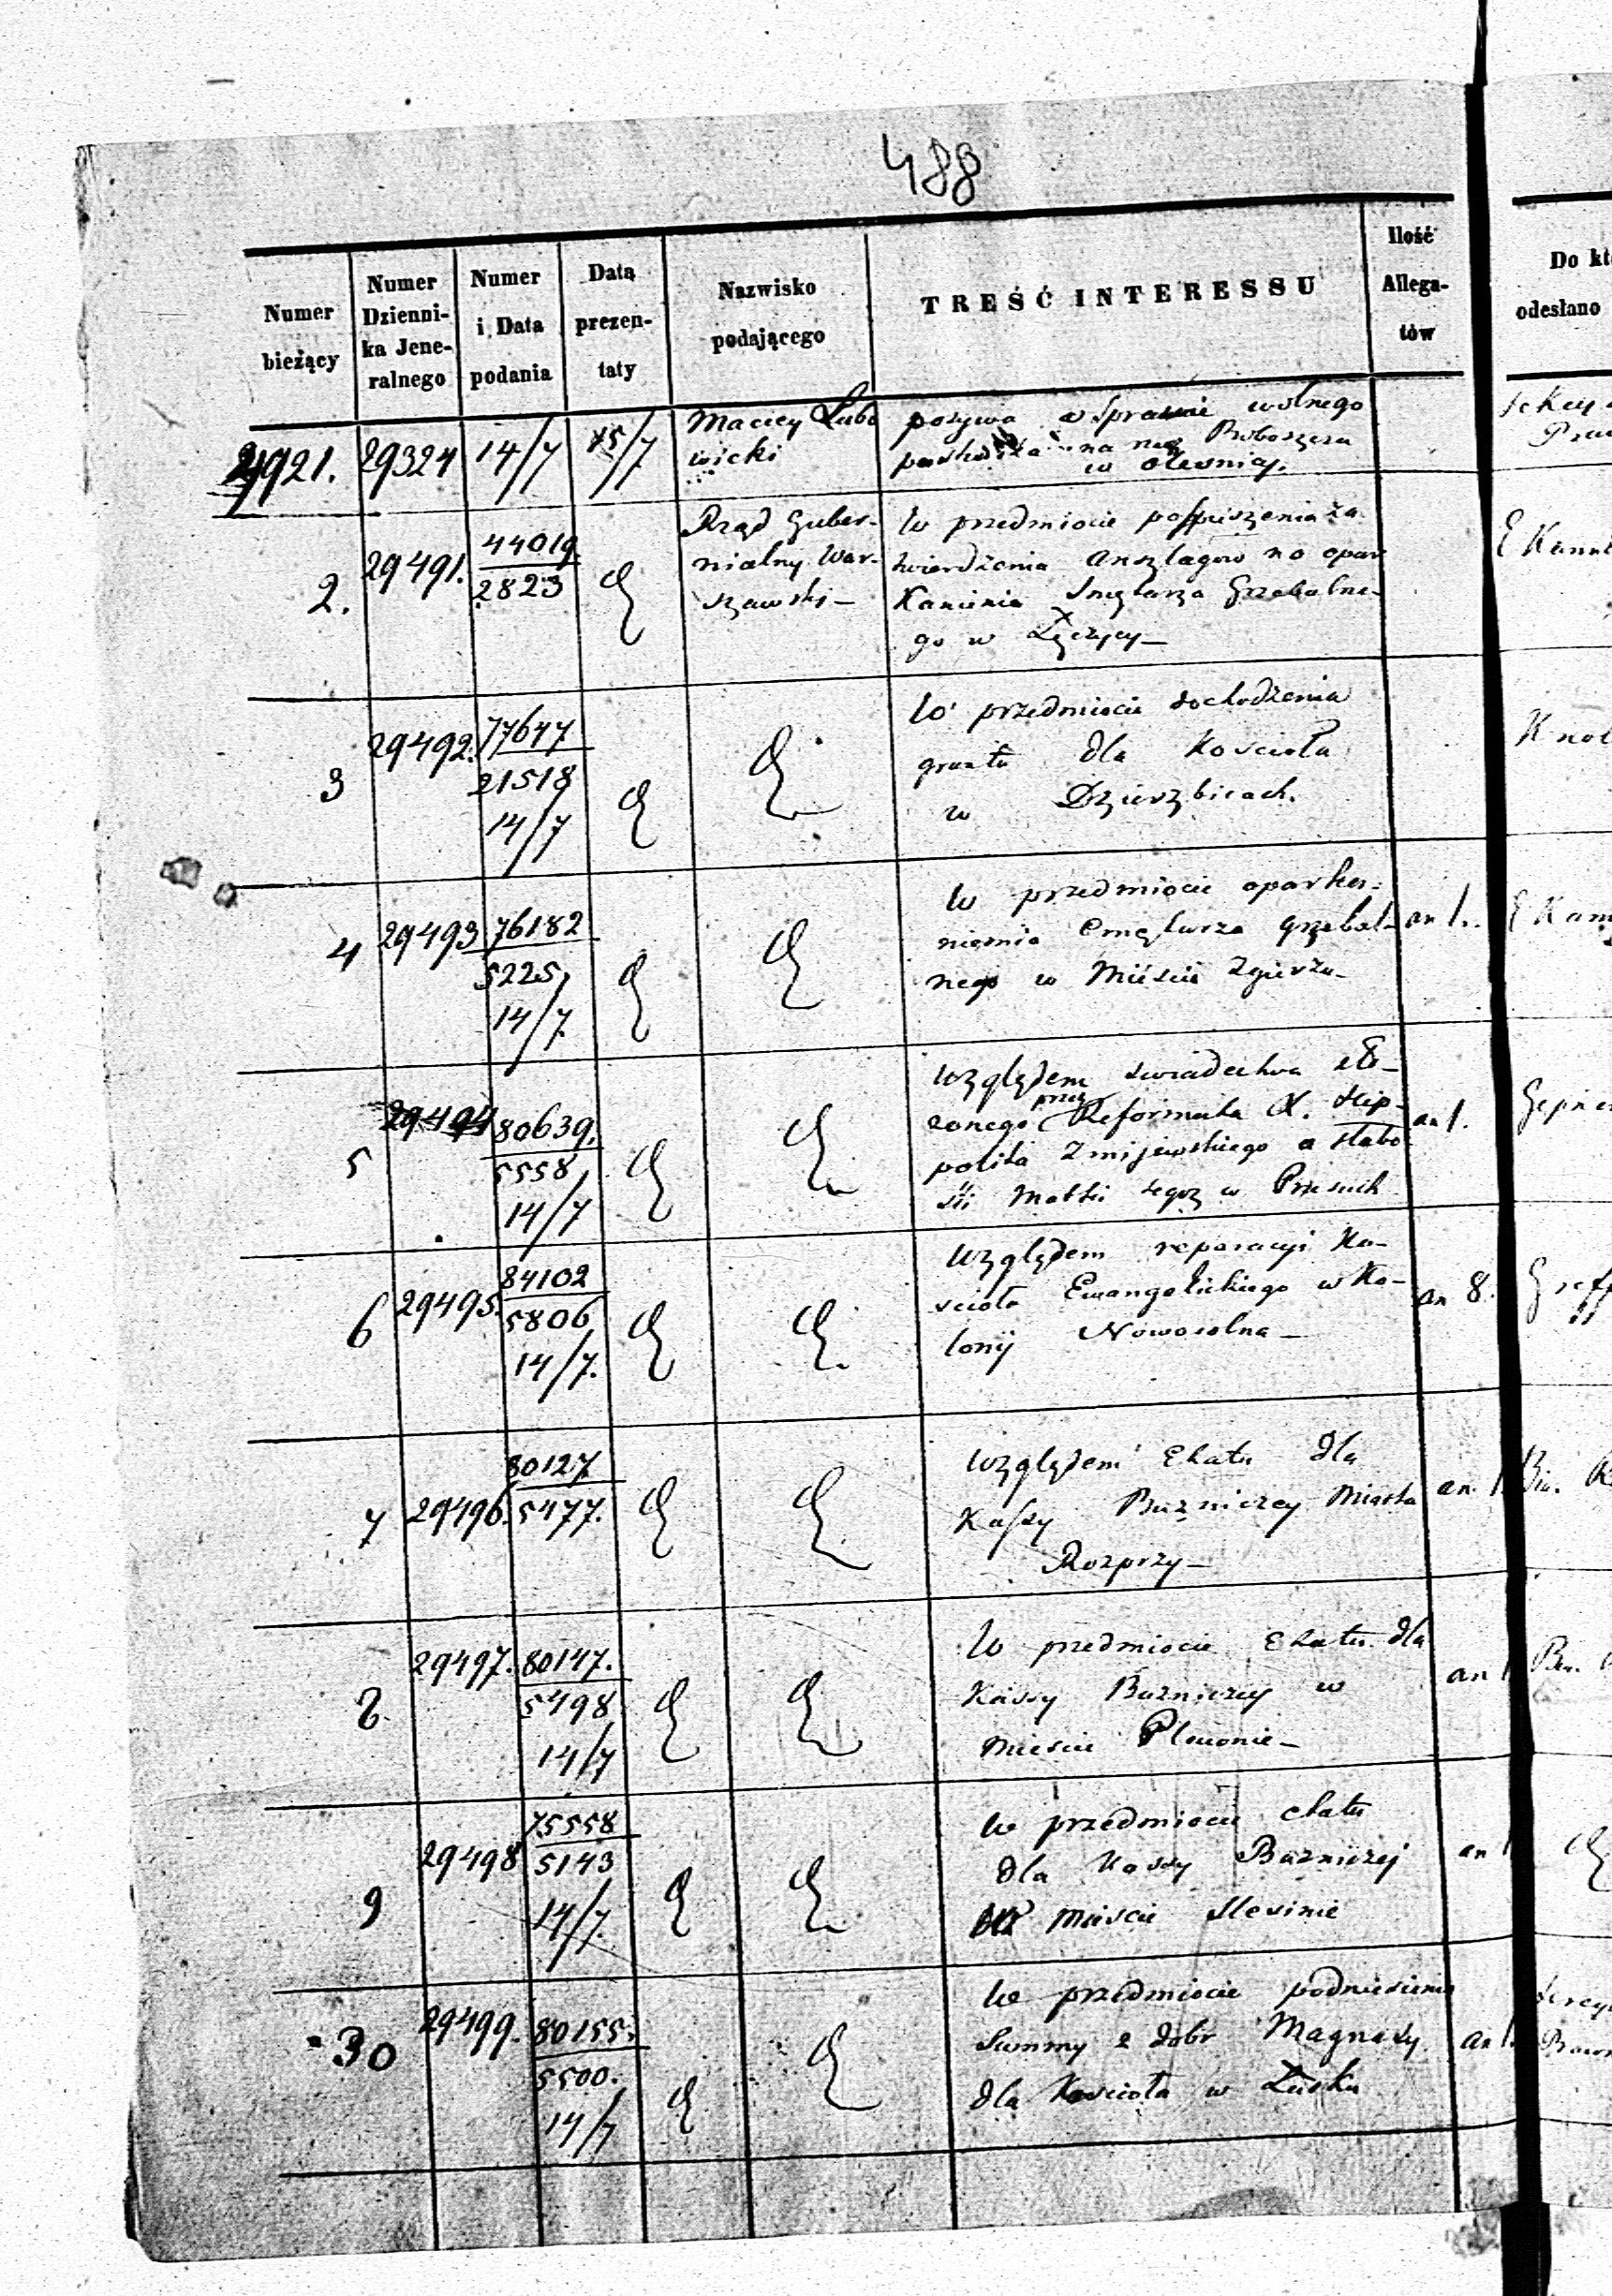 488
Numer bieżący
Numer Dzienni-ka Jene-ralnego
Numer i Data podania
Data prezen-taty
Nazwisko podającego
TREŚĆ INTERESSU
Ilość Allega-tów
Do kt
odesłano
2921. 29324 14/7 15/7
Maciey Lubo
wicki
w Sprawie wolnego
na rzecz Proboszcza
w Olesnicy.
2. 29491. 44019
2823
Rząd Guber-
nialny War-
szawski—
W przedmiocie pospieszenia za
twierdzenia anszlagow na opar
Kanienie Smętarza Grzebalne-
go w Łęczycy—
3 29492. 77647
21518
14/7
W przedmiocie dochodzenia
gruntu dla Kościoła
w Dzierzbicach.
4 29493 76182
5225
14/7
W przedmiocie oparka-
nienia Smętarza grzebal-
nego w Mieście Zgierzu—
an 1.
5 29494 80639.
5558
14/7
Względem swiadectwa zło-
zonego przez Reformata X. Hip-
polita Zmijewskiego o słabo
ści Matki tegoz w
an 1.
6 29495. 84102
5806
14/7.
Względem reparacyi Ko-
scioła Ewangelickiego w Ko-
lonij Nowosolna—
an 8.
7 29496. 80127
5477.
Względem Etatu dla
Kassy Bużniczey Miasta
Rozprzy—
an 1.
8 29497. 80147.
5498
14/7
W przedmiocie Etatu dla
Kassy Bożniczey w
Miescie Pławnie—
an 1
9 29498 75558
5143
14/7.
W przedmiocie etatu
dla Kassy Bozniczej
w Mieście Slesinie
an 1
30 29499. 80155.
5500.
14/7
W przedmiocie podniesienia
Summy z dobr Magnusy
dla Kościoła w Łasku
an 1.